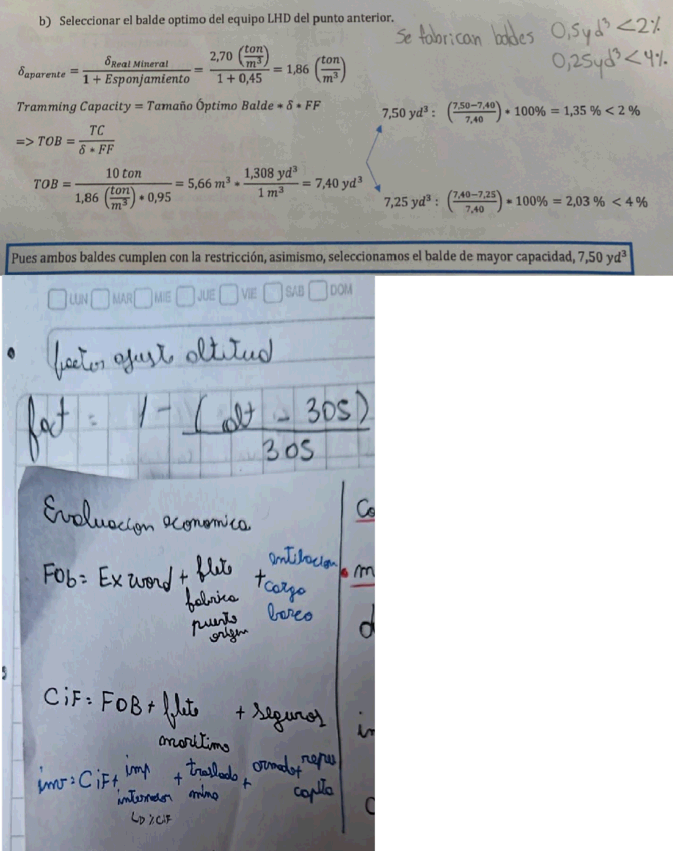 b) Seleccionar el balde optimo del equipo LHD del punto anterior.
Se fabrican baldes 0,5yd³ < 2%
0,25yd³ < 4%
δaparente = δReal Mineral / (1 + Esponjamiento) = 2,70 (ton/m³) / (1 + 0,45) = 1,86 (ton/m³)
Tramming Capacity = Tamaño Óptimo Balde * δ * FF
=> TOB = TC / (δ * FF)
TOB = 10 ton / (1,86 (ton/m³) * 0,95) = 5,66 m³ * 1,308 yd³ / 1 m³ = 7,40 yd³
7,50 yd³ : ((7,50−7,40) / 7,40) * 100% = 1,35 % < 2 %
7,25 yd³ : ((7,40−7,25) / 7,40) * 100% = 2,03 % < 4 %
Pues ambos baldes cumplen con la restricción, asimismo, seleccionamos el balde de mayor capacidad, 7,50 yd³
LUN MAR MIE JUE VIE SAB DOM
factor ajuste altitud
fat = 1 - (alt - 305) / 305
Evaluacion economica
FOb = Ex word + flete + 
fabrica
puerto
origen
cargo
barco
CiF = FOB + flete + seguros
maritimo
inv = CiF + imp + traslado + armado + repu
mina
↳ % CiF